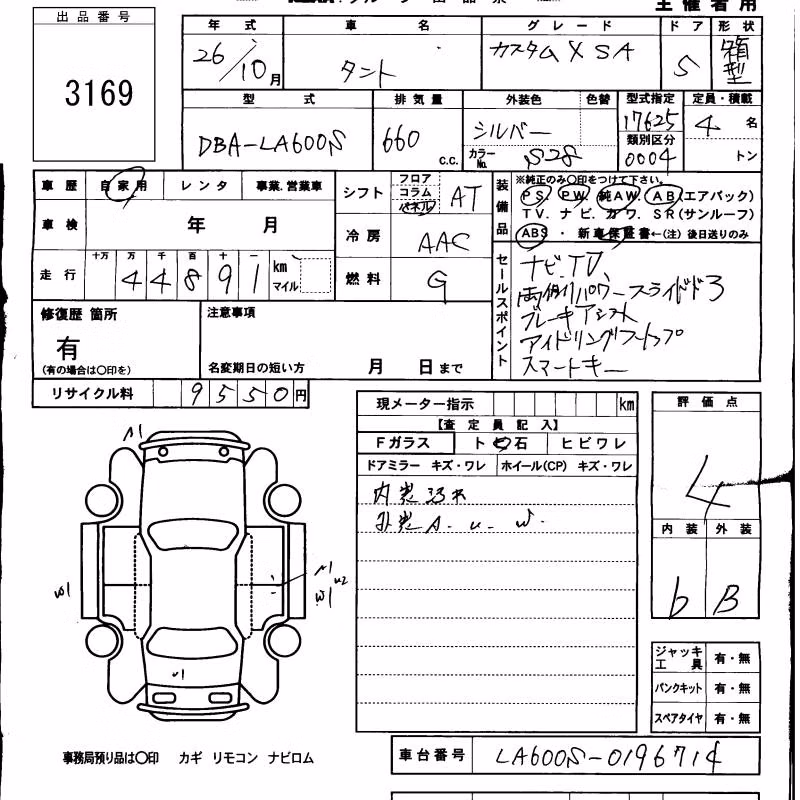 主催者用
出品番号
3169
年式 車名 グレード ドア 形状
26/10月 タント カスタムX SA 5 箱型
型式 排気量 外装色 色替 型式指定 定員・積載
DBA-LA600S 660 c.c. シルバー 17625 4 名
類別区分
カラーNo. S28 0004 トン
車歴 自家用 レンタ 事業.営業車
シフト フロア コラム パネル AT
装備品 ※純正のみ〇印をつけて下さい。
PS. PW. 純AW. AB(エアバック)
TV. ナビ. カワ. SR(サンルーフ)
ABS ・ 新車保証書←(注) 後日送りのみ
車検 年 月
冷房 AAC
走行 十万 万 千 百 十 一
44891 km マイル
燃料 G
セールスポイント
ナビ.TV.
両側パワースライドドア
ブレーキアシスト
アイドリングストップ
スマートキー
修復歴 箇所
有
(有の場合は〇印を)
注意事項
名変期日の短い方 月 日まで
リサイクル料 9550円
現メーター指示 km
【査定員記入】
Fガラス ト ビ 石 ヒビワレ
ドアミラー キズ・ワレ ホイール(CP) キズ・ワレ
内装汚れ
外装A. U. W.
評価点
4
内装 外装
b B
A1
W1
A1
U2
W1
W1
ジャッキ工具 有・無
パンクキット 有・無
スペアタイヤ 有・無
事務局預り品は〇印 カギ リモコン ナビロム
車台番号 LA600S-0196714